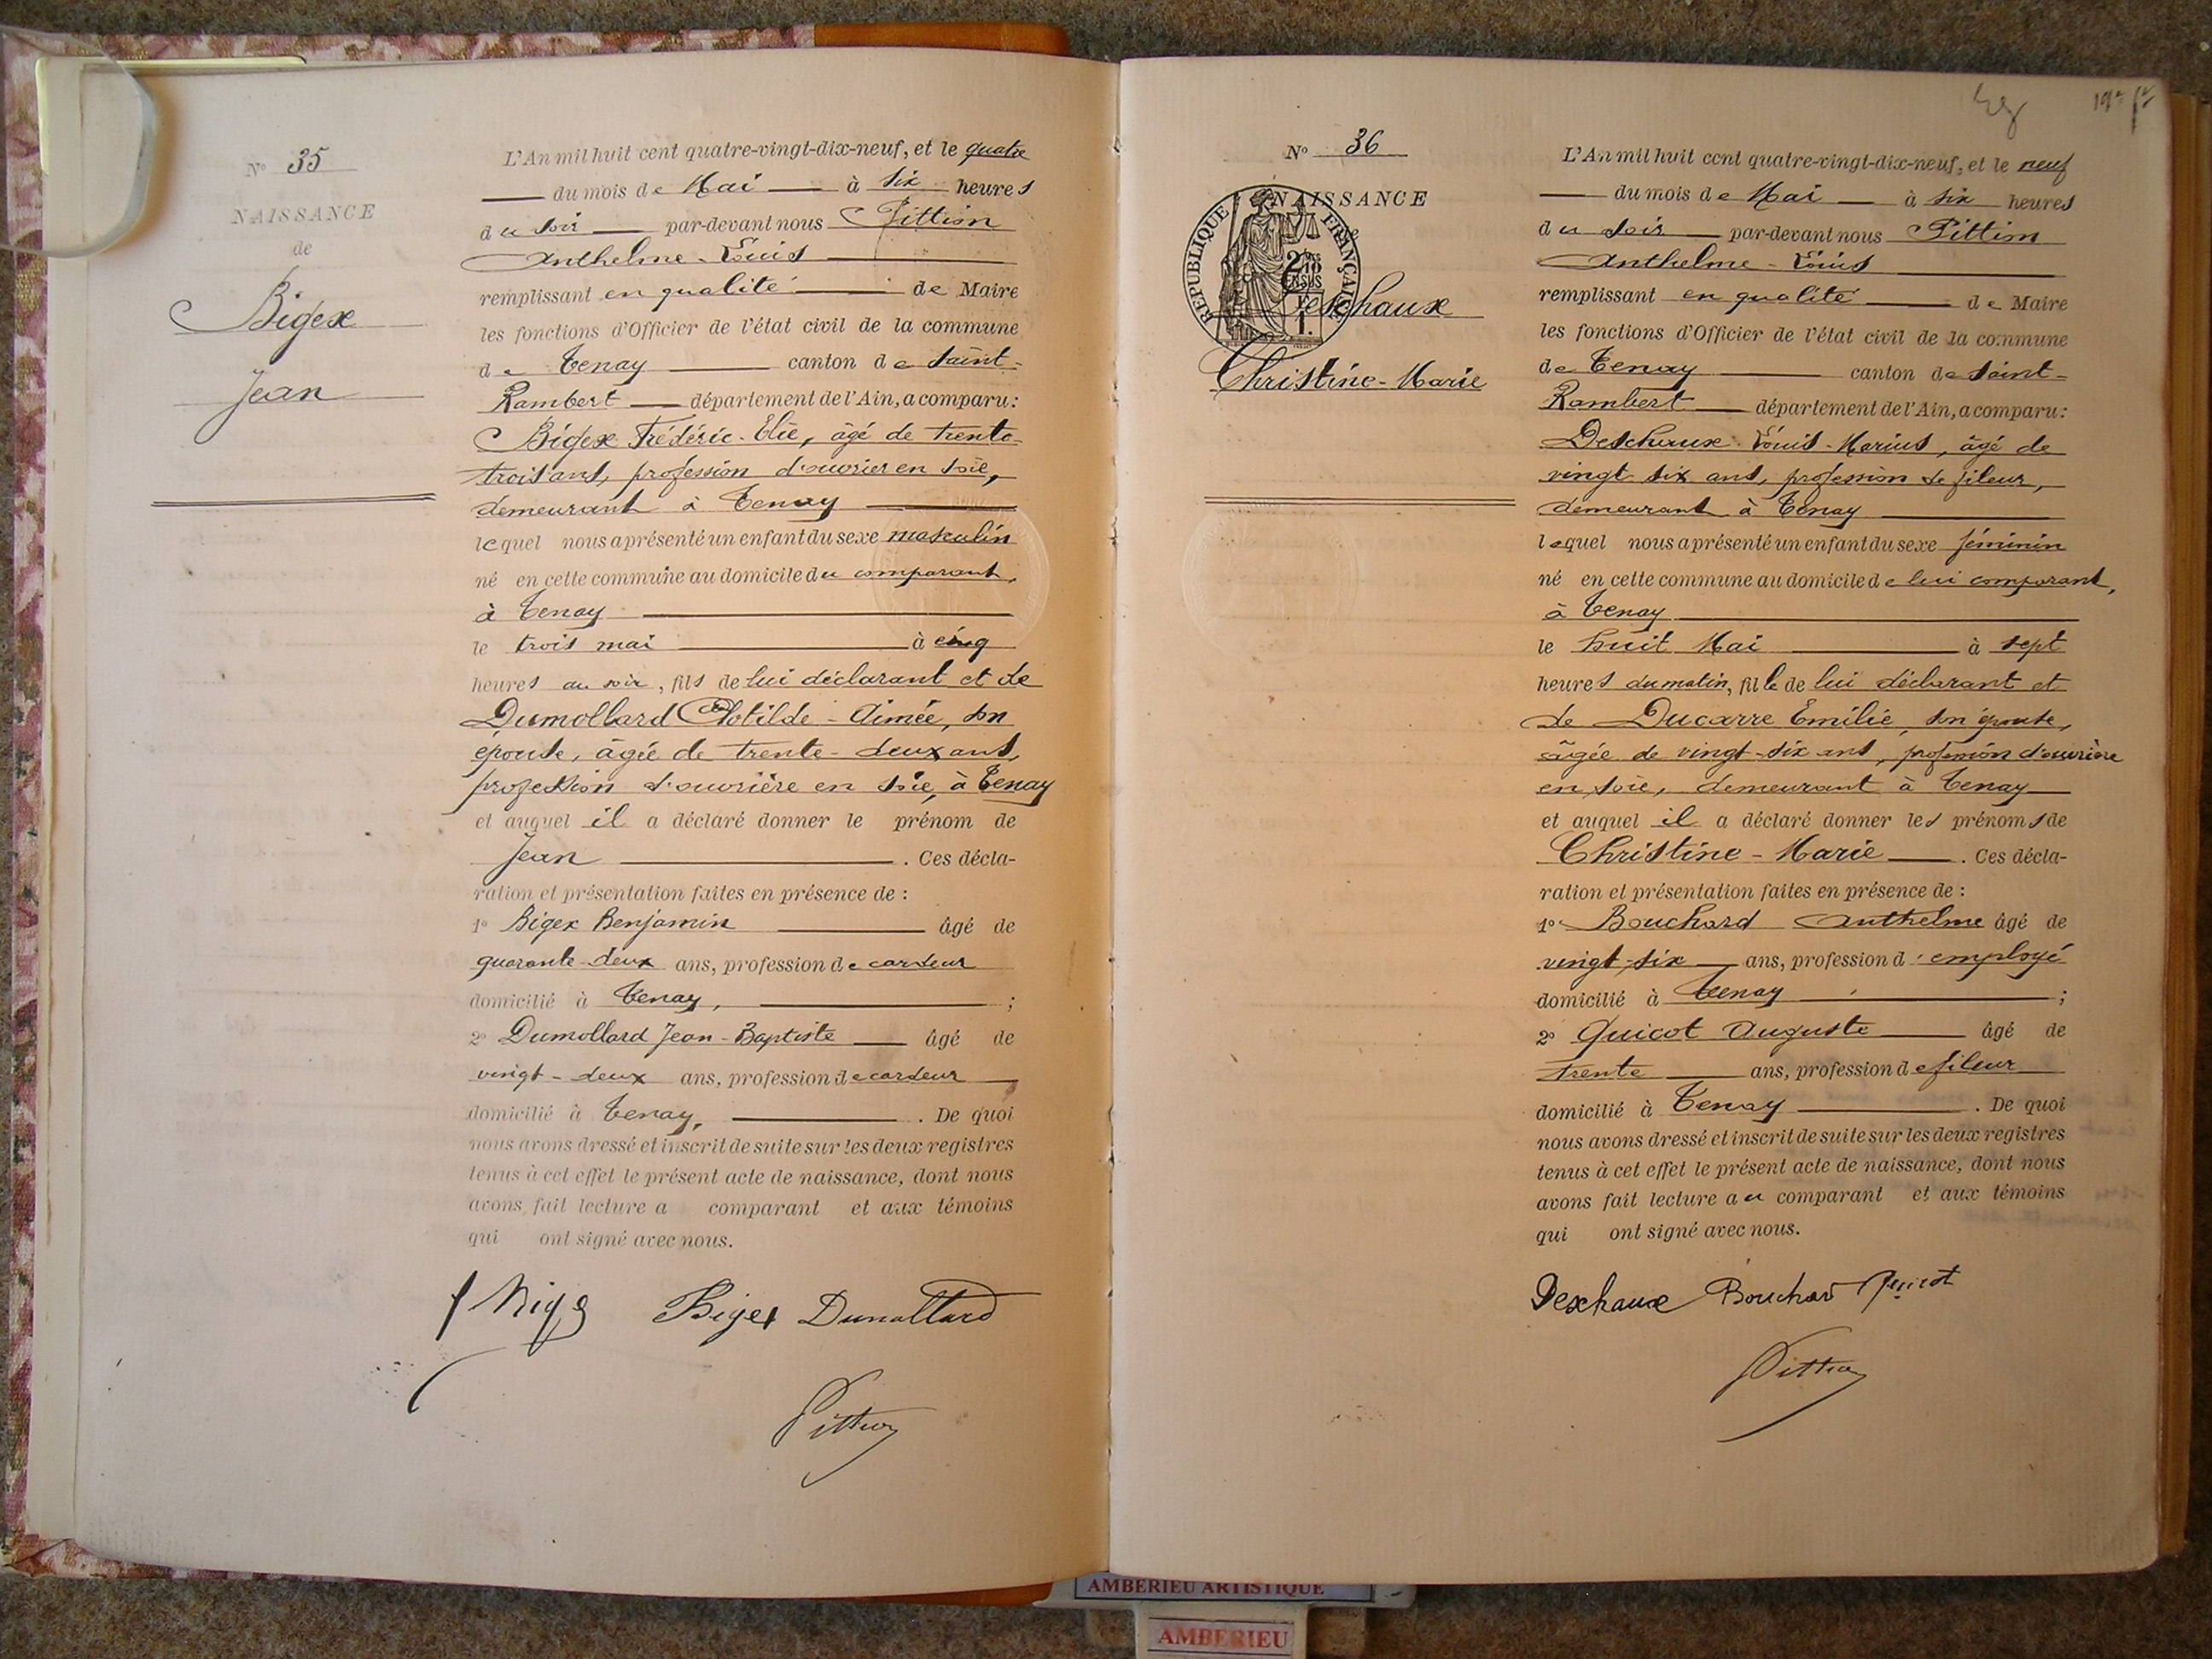 N° 35
NAISSANCE
de
Bigex
Jean
L'An mil huit cent quatre-vingt-dix-neuf, et le quatre
du mois de Mai à six heures
du soir par-devant nous Pittion
Anthelme-Louis
remplissant en qualité de Maire
les fonctions d'Officier de l'état civil de la commune
de Tenay canton de Saint-
Rambert département de l'Ain, a comparu:
Bigex Frédéric-Elie, âgé de trente-
trois ans, profession d'ouvrier en soie,
demeurant à Tenay
lequel nous a présenté un enfant du sexe masculin
né en cette commune au domicile du comparant,
à Tenay
le trois mai à cinq
heures du soir, fils de lui déclarant et de
Dumollard Clotilde-Aimée, son
épouse, âgée de trente-deux ans,
profession d'ouvrière en soie, à Tenay
et auquel il a déclaré donner le prénom de
Jean . Ces décla-
ration et présentation faites en présence de :
1° Bigex Benjamin âgé de
quarante-deux ans, profession de cardeur
domicilié à Tenay, ;
2° Dumollard Jean-Baptiste âgé de
vingt-deux ans, profession de cardeur
domicilié à Tenay, . De quoi
nous avons dressé et inscrit de suite sur les deux registres
tenus à cet effet le présent acte de naissance, dont nous
avons fait lecture a comparant et aux témoins
qui ont signé avec nous.
Bigex Dumollard
Pittion
19e
N° 36
NAISSANCE
de
REPUBLIQUE FRANÇAISE
Deschaux
Christine-Marie
L'An mil huit cent quatre-vingt-dix-neuf, et le neuf
du mois de Mai à six heures
du soir par-devant nous Pittion
Anthelme-Louis
remplissant en qualité de Maire
les fonctions d'Officier de l'état civil de la commune
de Tenay canton de Saint-
Rambert département de l'Ain, a comparu:
Deschaux Louis-Marius, âgé de
vingt six ans, profession de fileur,
demeurant à Tenay
lequel nous a présenté un enfant du sexe féminin
né en cette commune au domicile de lui comparant,
à Tenay
le huit Mai à sept
heures du matin, fille de lui déclarant et
de Ducarre Emilie, son épouse,
âgée de vingt-six ans, profession d'ouvrière
en soie, demeurant à Tenay
et auquel il a déclaré donner les prénoms de
Christine-Marie . Ces décla-
ration et présentation faites en présence de :
1° Bouchard Anthelme âgé de
vingt-six ans, profession d'employé
domicilié à Tenay ;
2° Quicot Auguste âgé de
trente ans, profession de fileur
domicilié à Tenay . De quoi
nous avons dressé et inscrit de suite sur les deux registres
tenus à cet effet le présent acte de naissance, dont nous
avons fait lecture au comparant et aux témoins
qui ont signé avec nous.
Deschaux Bouchard Quicot
Pittion
AMBERIEU ARTISTIQUE
AMBERIEU